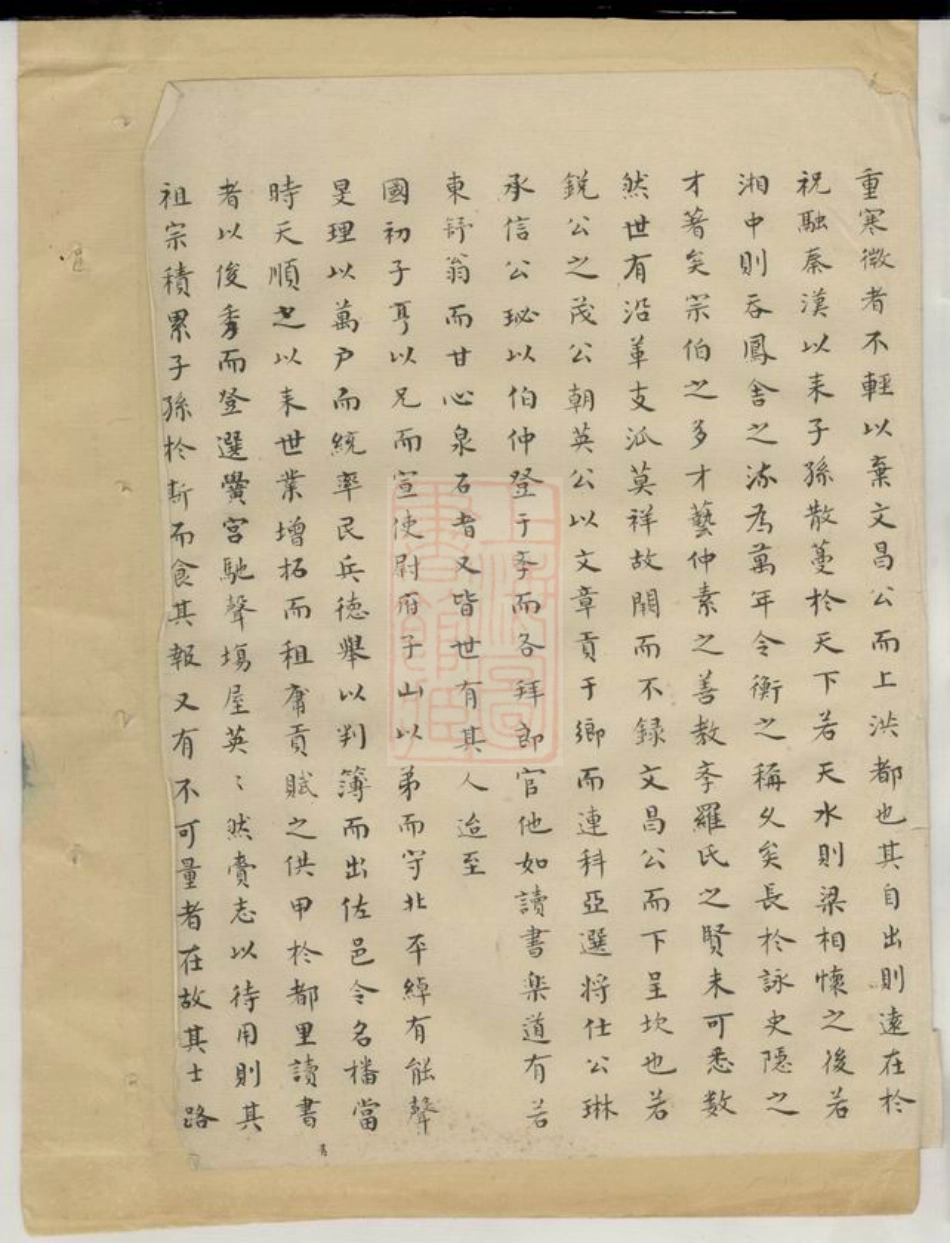 重寒徵者不輕以棄文昌公而上洪都也其自出則遠在於
祝融秦漢以来子孫散蔓於天下若天水則梁相懷之後若
湘中則吞鳳舍之流為萬年令衡之稱久矣長於詠史隠之
才著矣宗伯之多才藝仲素之善教李羅氏之賢未可悉数
然世有沿革支派莫祥故闕而不録文昌公而下呈坎也若
鋭公之茂公朝英公以文章貢于鄉而連科亞選将仕公琳
承信公珌以伯仲登于李而各拜郎官他如讀書楽道有若
東舒翁而甘心泉石者又皆世有其人迨至
國初子厚以兄而宣使尉府子山以弟而守北平綽有能聲
旻理以萬户而統率民兵德舉以判簿而出佐邑令名播當
時天順之以来世業增拓而租庸貢賦之供甲於都里讀書
者以俊秀而登選黌宮馳聲塲屋英〻然賫志以待用則其
祖宗積累子孫於斯而食其報又有不可量者在故其士路